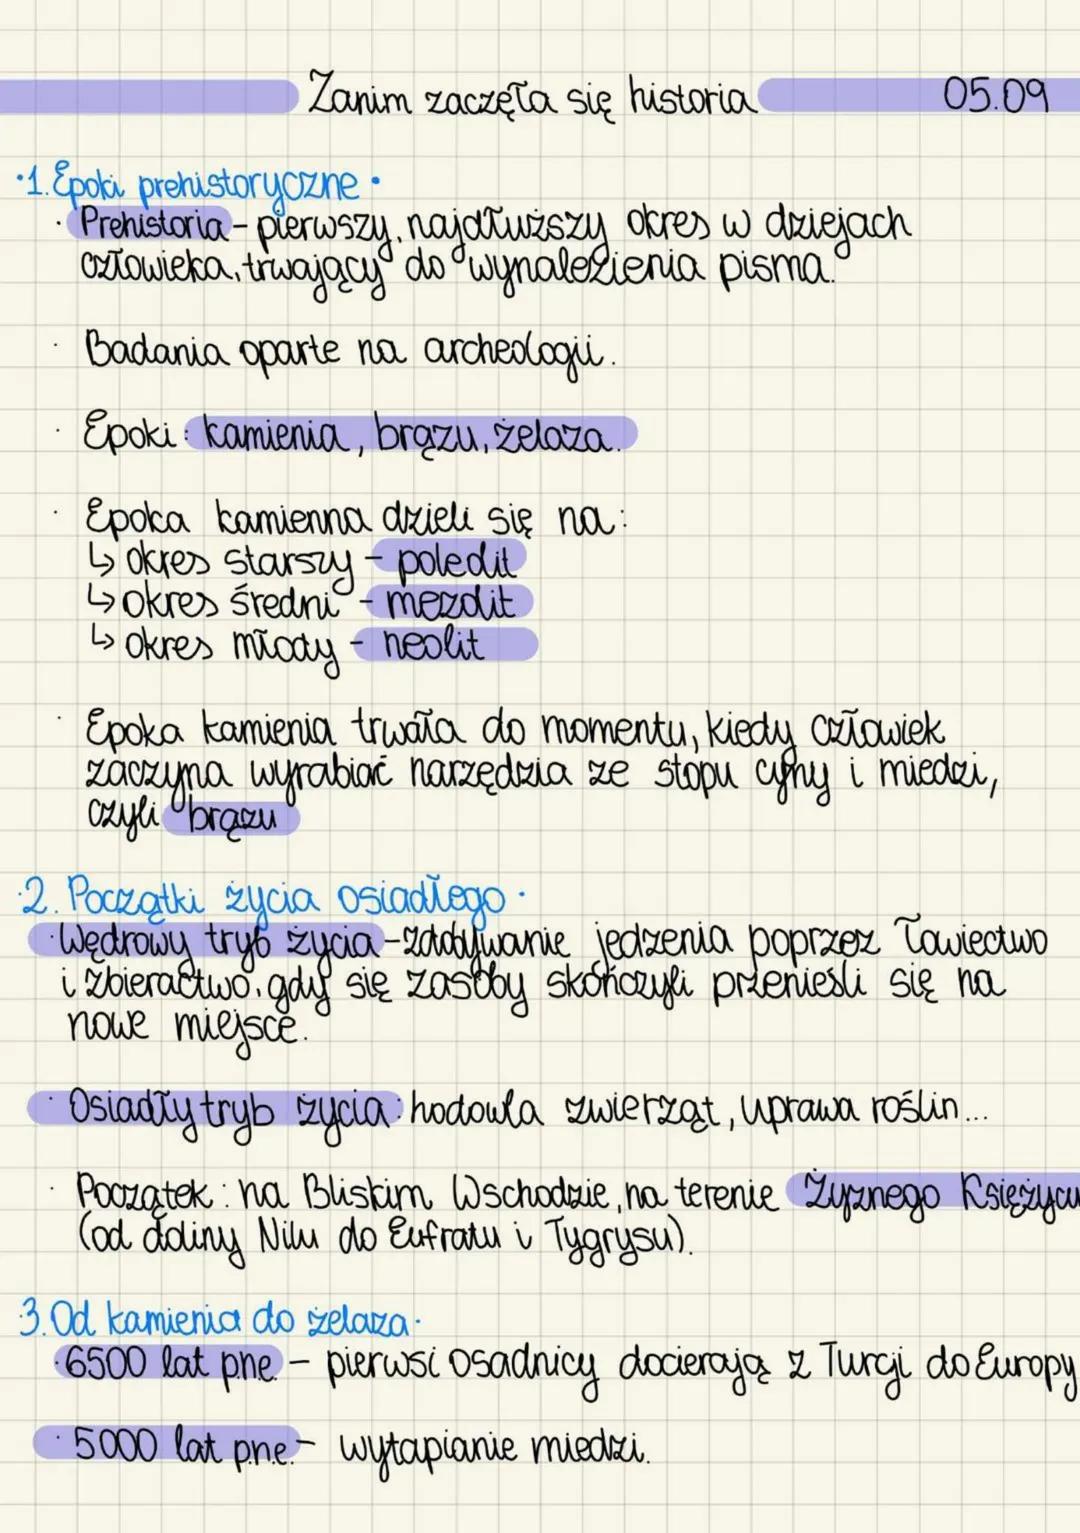 Zanim zaczęła się historia 05.09
·1. Epoki prehistoryczne ·
· Prehistoria - pierwszy, najdłuższy okres w dziejach
człowieka, trwający do wynalezienia pisma.
· Badania oparte na archeologii.
· Epoki: kamienia, brązu, żelaza.
· Epoka kamienna dzieli się na:
↳ okres starszy - poledit
↳ okres średni - mezolit
↳ okres młody - neolit
· Epoka kamienia trwała do momentu, kiedy człowiek
zaczyna wyrabiać narzędzia ze stopu cyny i miedzi,
czyli brązu
·2. Początki życia osiadłego ·
· Wędrowy tryb życia - zdobywanie jedzenia poprzez łowiectwo
i zbieractwo, gdy się zasoby skończyli przenieśli się na
nowe miejsce.
· Osiadły tryb życia: hodowla zwierząt, uprawa roślin...
· Początek: na Bliskim Wschodzie, na terenie Żyznego Księżycu
(od doliny Nilu do Eufratu i Tygrysu).
·3. Od kamienia do żelaza ·
· 6500 lat pne - pierwsi osadnicy docierają z Turcji do Europy
· 5000 lat p.n.e. - wytapianie miedzi.